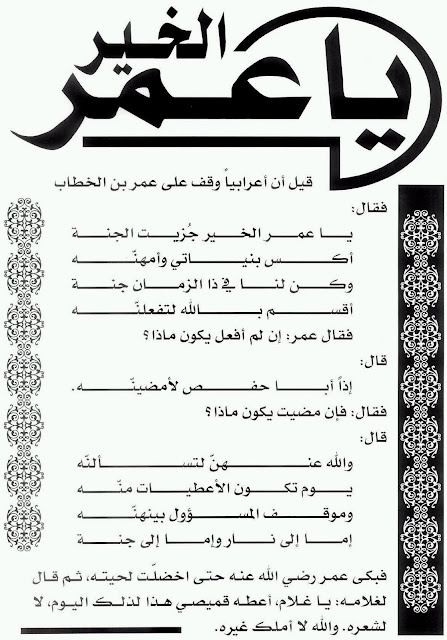 يا عمر الخير
قيل أن أعرابياً وقف على عمر بن الخطاب
فقال:
يا عمر الخير جُزيت الجنة
أكس بنياتي وأمهنّه
وكن لنا في ذا الزمان جنة
أقسم بالله لتفعلنّه
فقال عمر: إن لم أفعل يكون ماذا؟
قال:
إذاً أبا حفص لأمضينّه.
فقال: فإن مضيت يكون ماذا؟
قال:
والله عنهنّ لتسألنّه
يوم تكون الأعطيات منّه
وموقف المسؤول بينهنّه
إما إلى نار وإما إلى جنة
فبكى عمر رضي الله عنه حتى اخضلّت لحيته، ثم قال
لغلامه: يا غلام، أعطه قميصي هذا لذلك اليوم، لا
لشعره. والله لا أملك غيره.